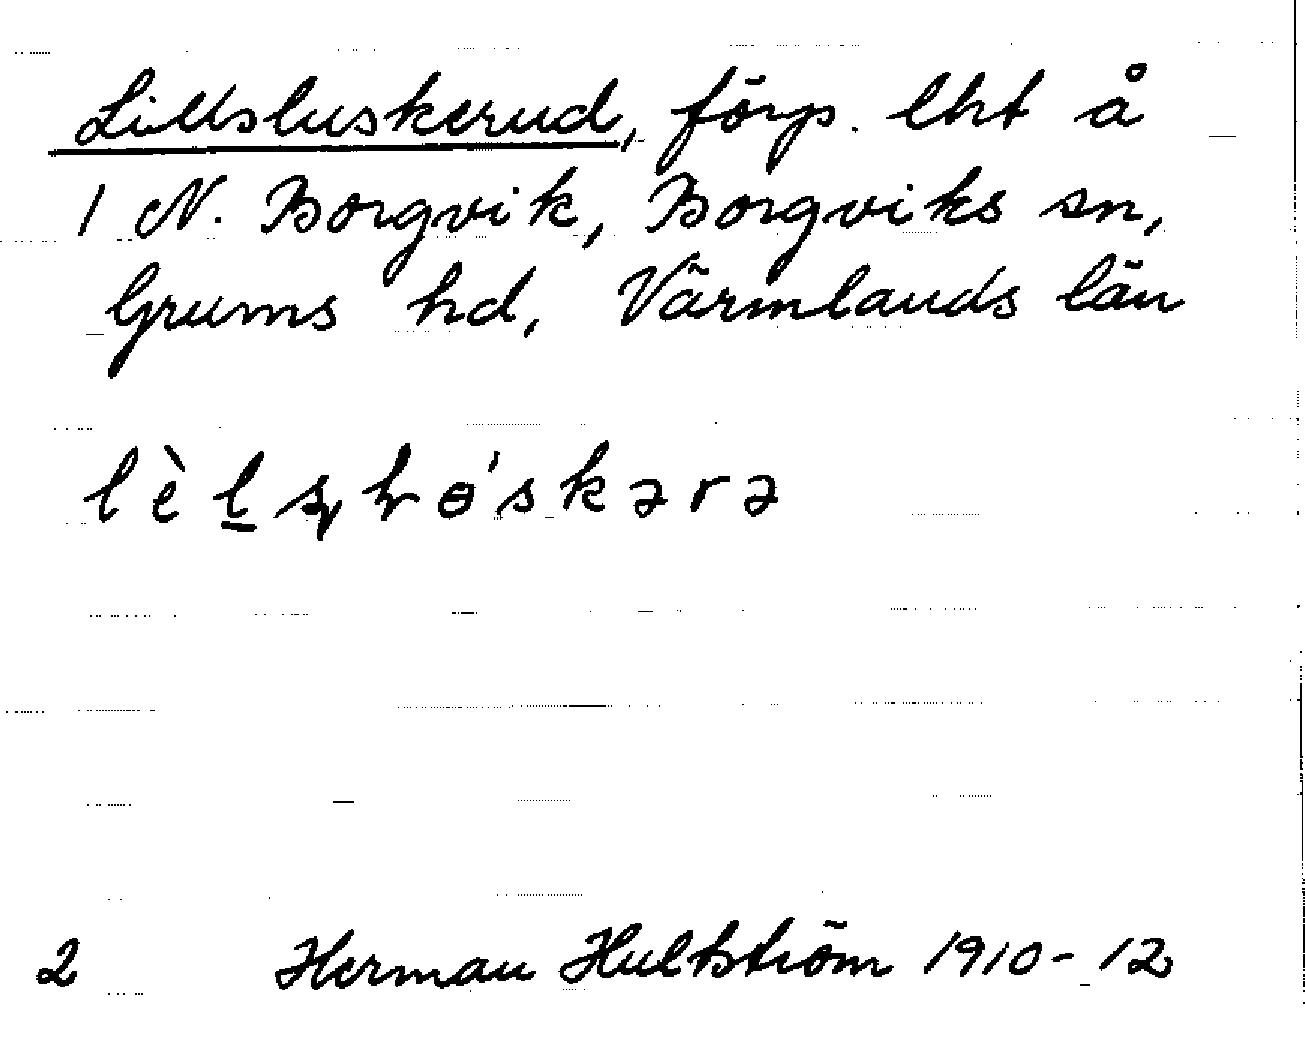 Lillsluskerud, förp. lht å
1 N. Borgvik, Borgviks sn,
Grums hd, Värmlands län
2 Herman Hultström 1910-12